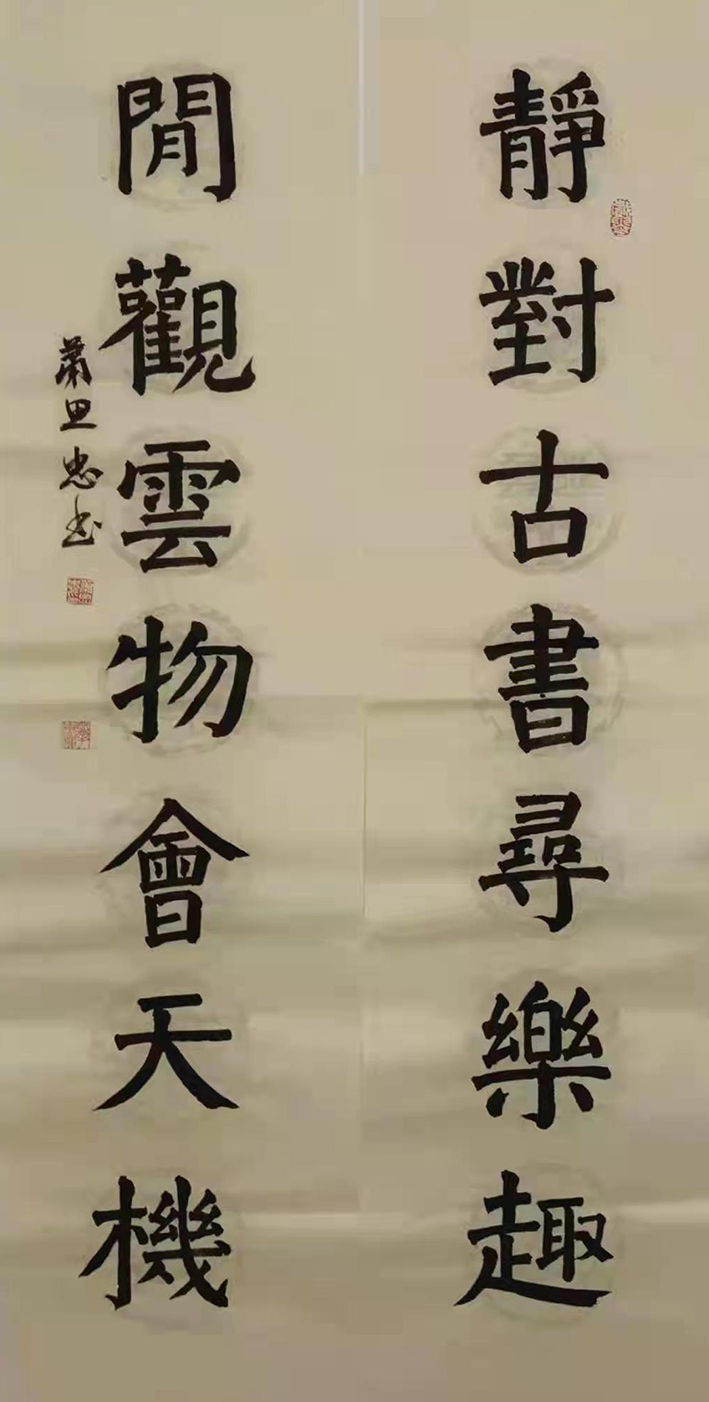 靜對古書尋樂趣
閒觀雲物會天機
蕭思忠书